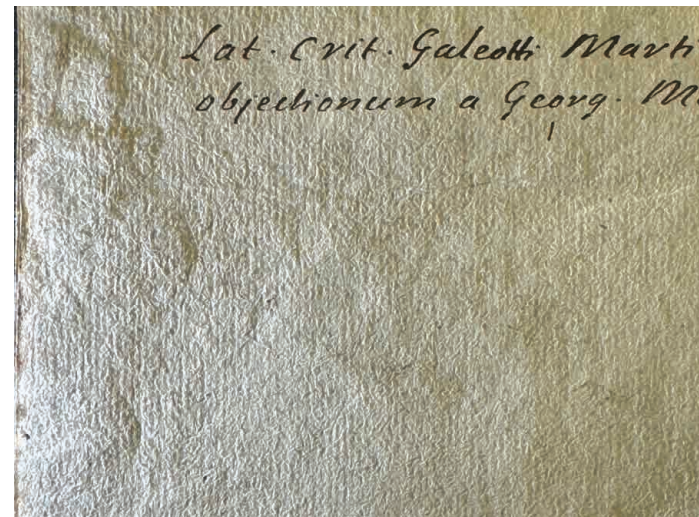 Lat. Crit. Galeotti Marti
objectionum a Georg. M